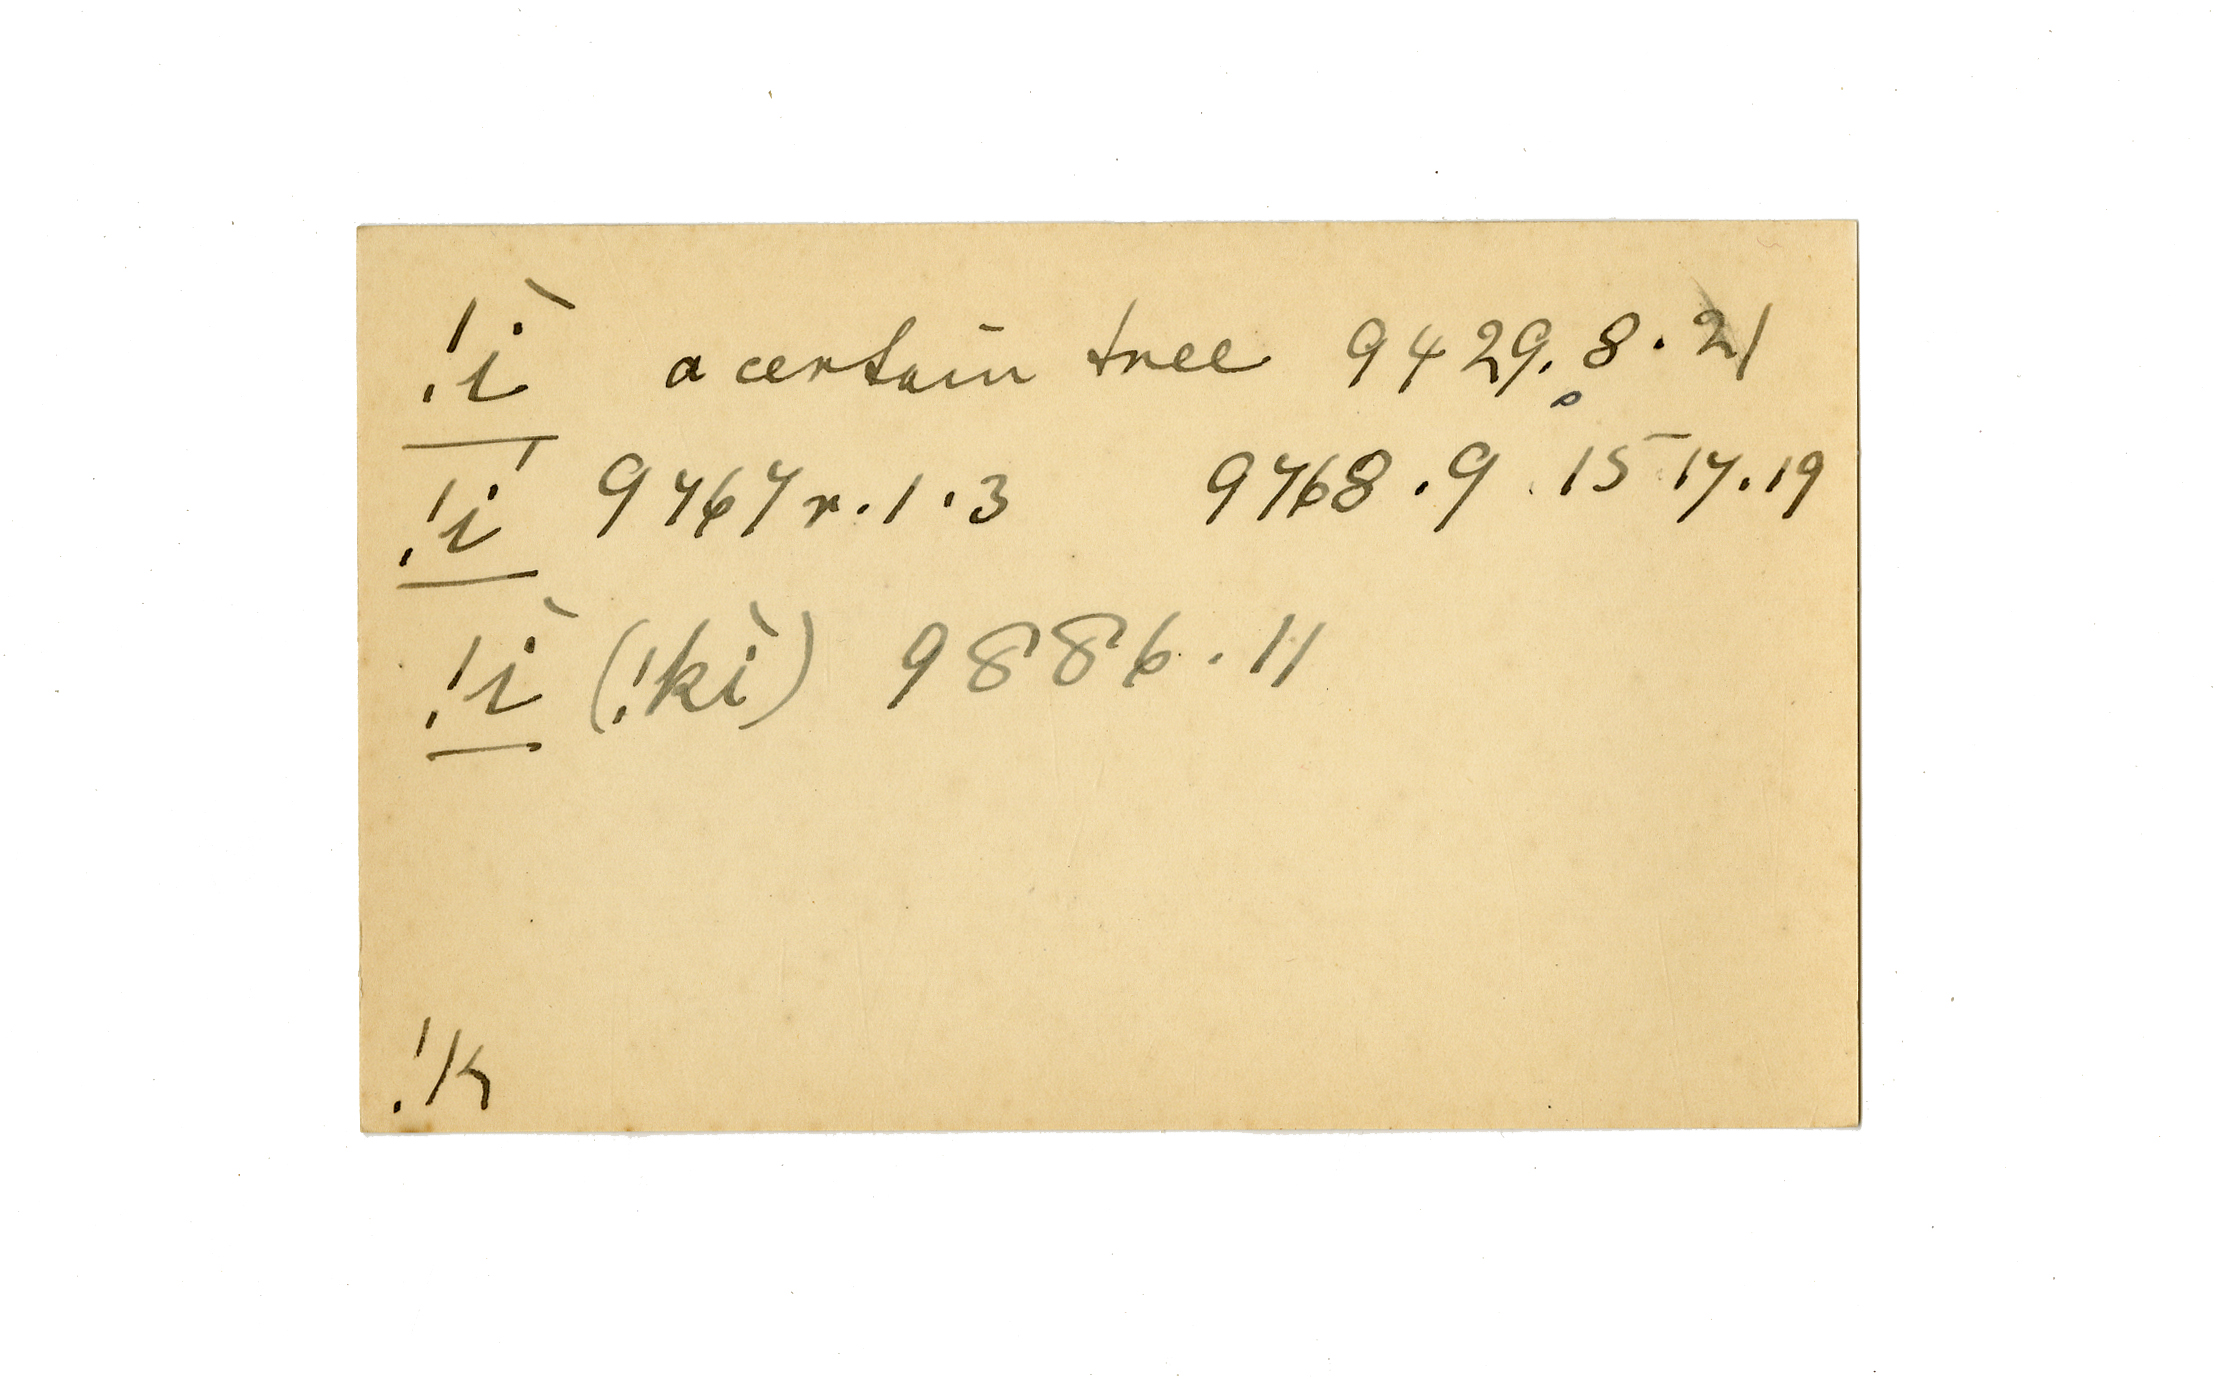 !ì a certain tree 9429.8.21
!í 9767r.1.3 9768.9.15 17.19
!ì (!kì) 9886.11
!k